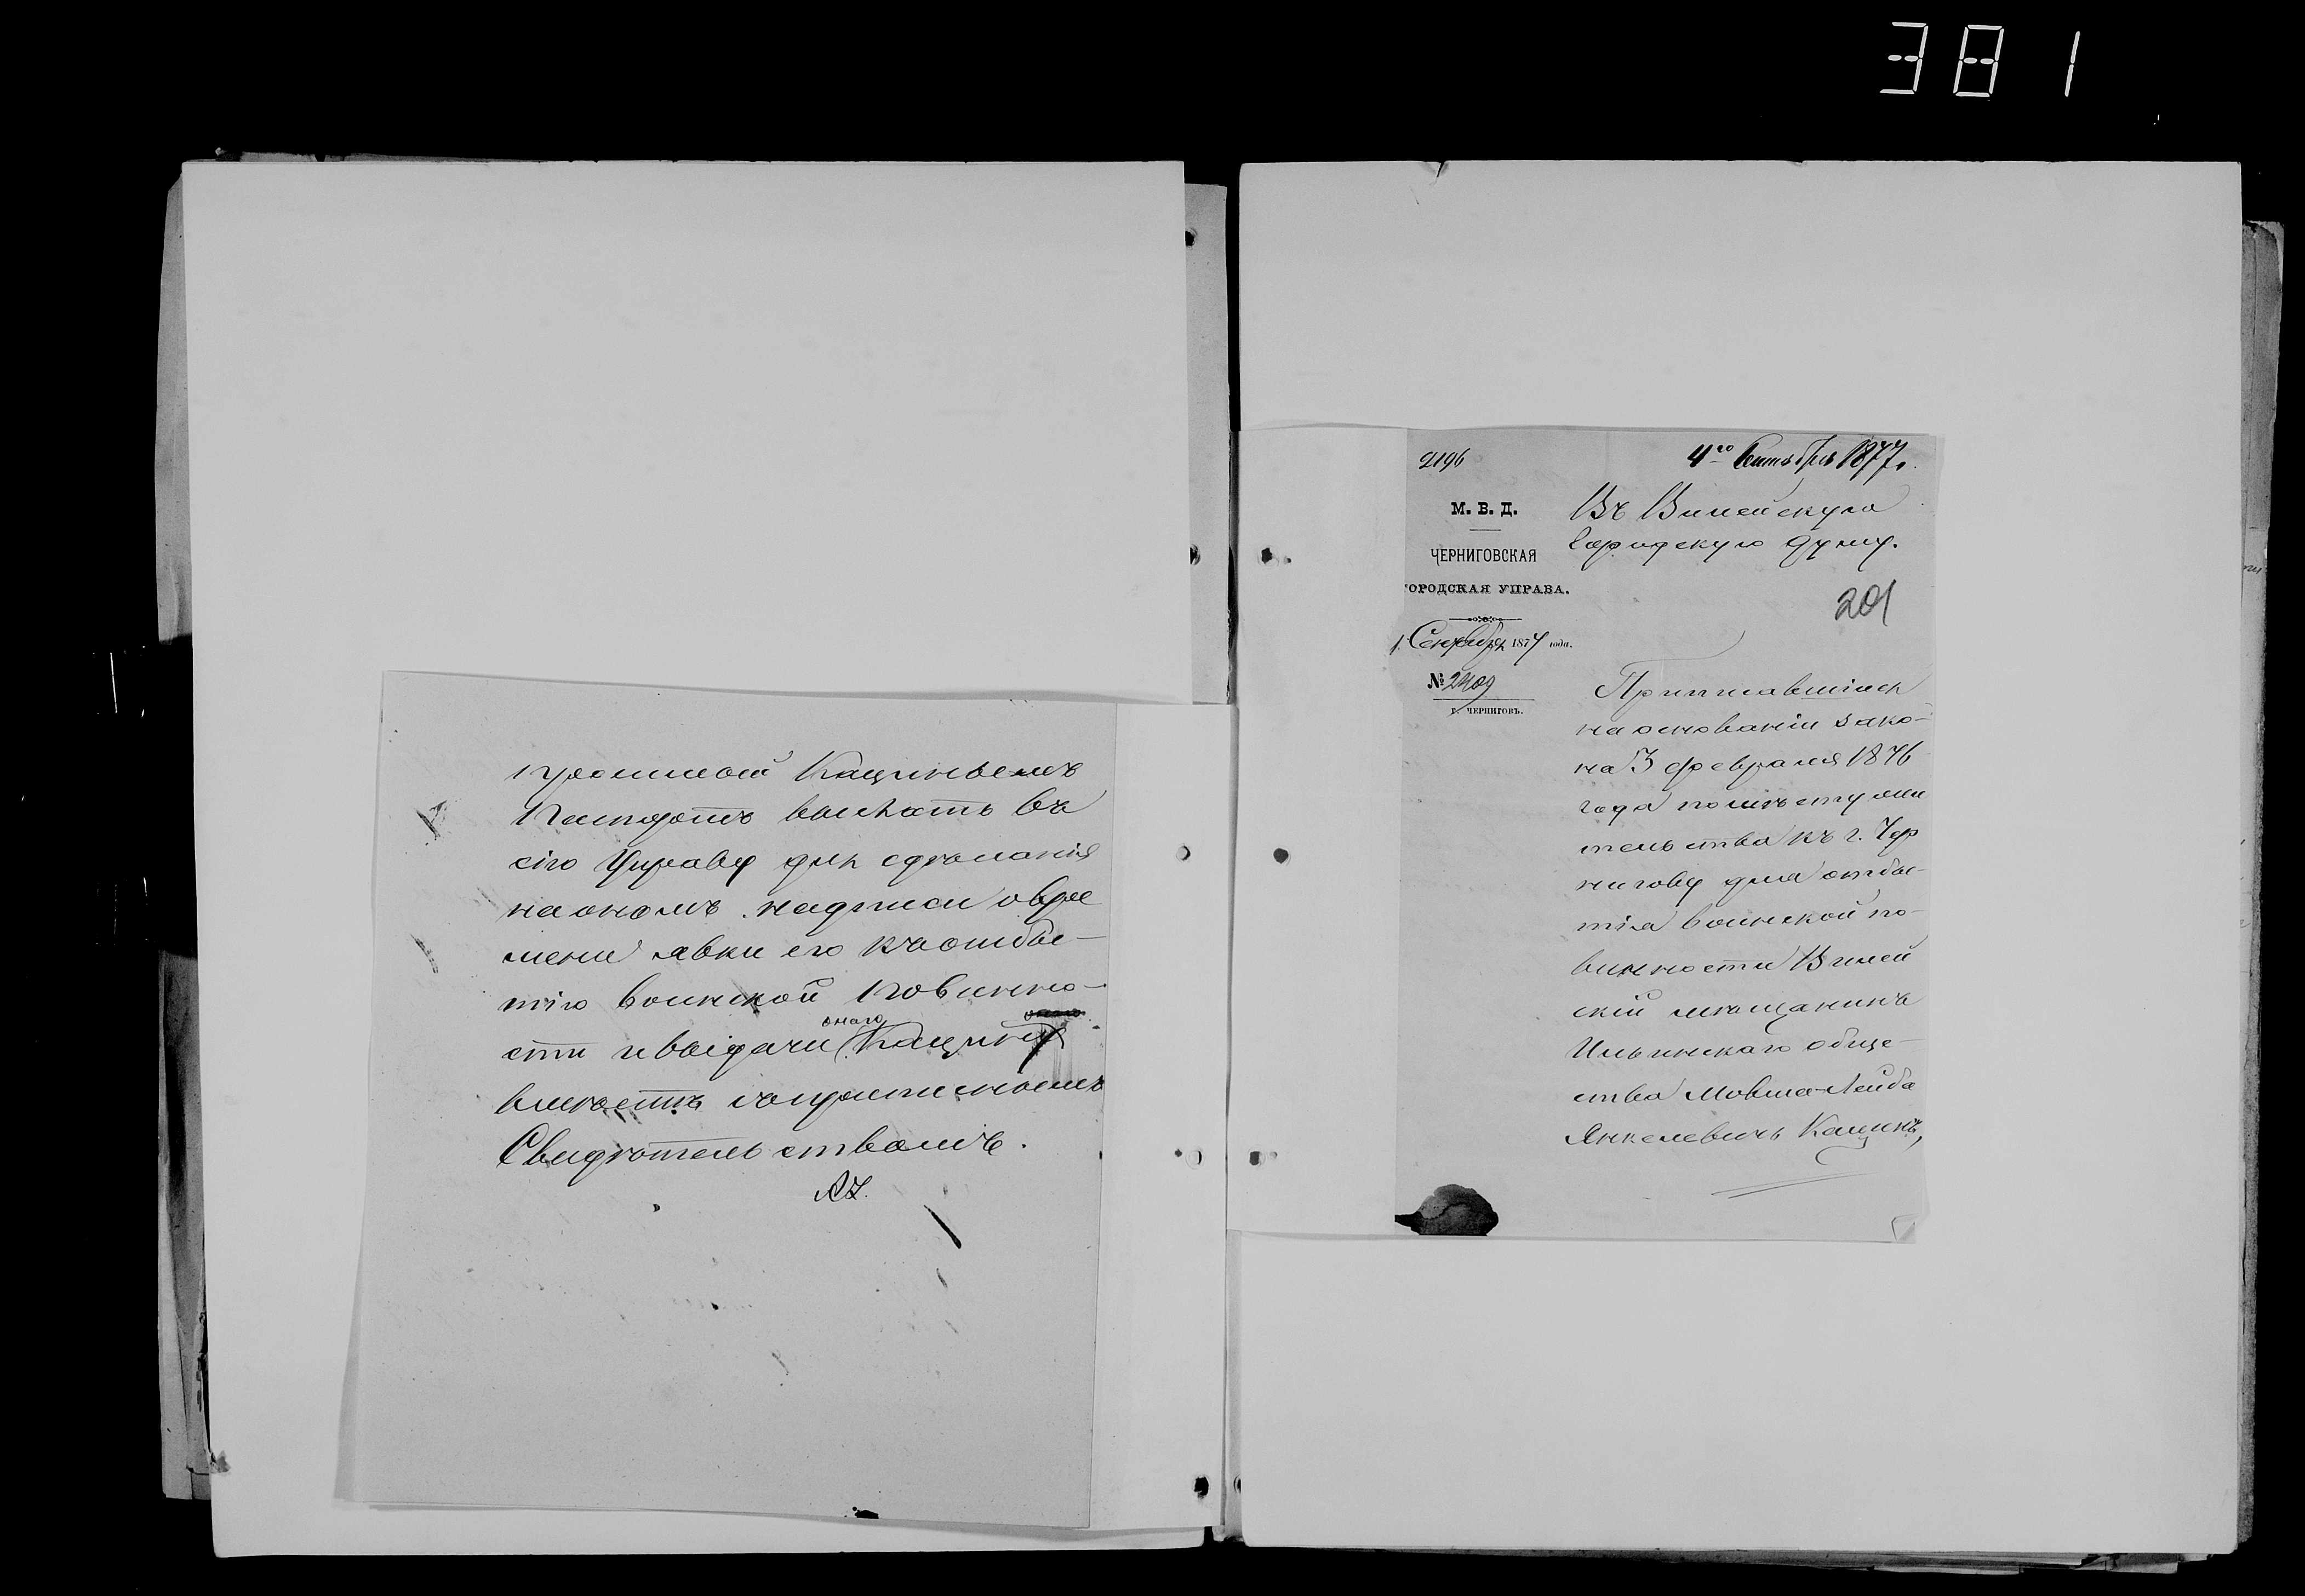 381
просимой Кацинвемъ
Паспортъ выслать въ
сію Управу для сдѣланія
на ономъ надписи о вре
мени явки его къ отбы-
тію воинской повинно-
сти и выдачи онаго Кацину
вмѣстѣ съ приписнымъ
Свидѣтельствомъ.
2196
4го Сентября 1877 г.
М. В. Д.
ЧЕРНИГОВСКАЯ
ГОРОДСКАЯ УПРАВА.
1 Сентября 1877 года.
№ 2409
г. ЧЕРНИГОВЪ.
Въ Вилейскую
Городскую Думу.
201
Приписавшійся
на основаніи зако-
на 3 февраля 1876
года по мѣсту жи
тельства къ г. Чер
нигову для отбы-
тія воинской по-
винности Вилей
скій мѣщанинъ
Ильинскаго обще-
ства Мовша-Лейба
Янкелевичъ Кацинъ,